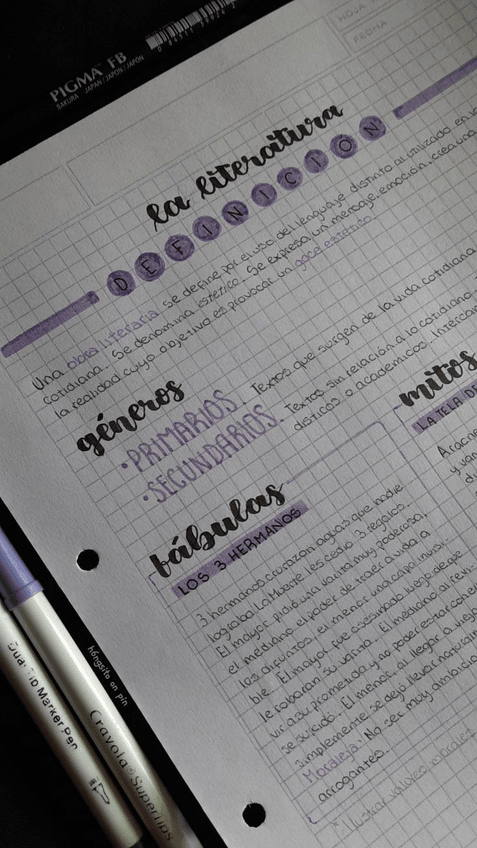 PIGMA FB
SAKURA JAPAN/JAPON/JAPÓN
HOJA
FECHA
la literatura
DEFINICIÓN
Una obra literaria se define por el uso del lenguaje distinto al utilizado en la
cotidiana. Se denomina estético. Se expresa un mensaje, emoción, crea una
la realidad cuyo objetivo es provocar un goce estético.
géneros
• PRIMARIOS. Textos que surgen de la vida cotidiana
• SECUNDARIOS. Textos sin relación a lo cotidiano.
o académicos.
fábulas
LOS 3 HERMANOS
3 hermanos cruzaron aguas que nadie
lograba. La Muerte les cedió 3 regalos.
El mayor pidió una varita muy poderosa,
el mediano el poder de traer a vida a
los difuntos, el menor una capa invisi-
ble. El mayor fue asesinado luego de que
le robaran su varita. El mediano al
vir a su prometida y no poder estar con
se suicidó. El menor al llegar a viejo
simplemente se dejó llevar
Moraleja: No ser muy
arrogantes.
mitos
LA TELA DE
Aracne
y van
Dual Tip Marker Pen
hongsito on pin
Crayola Supertips